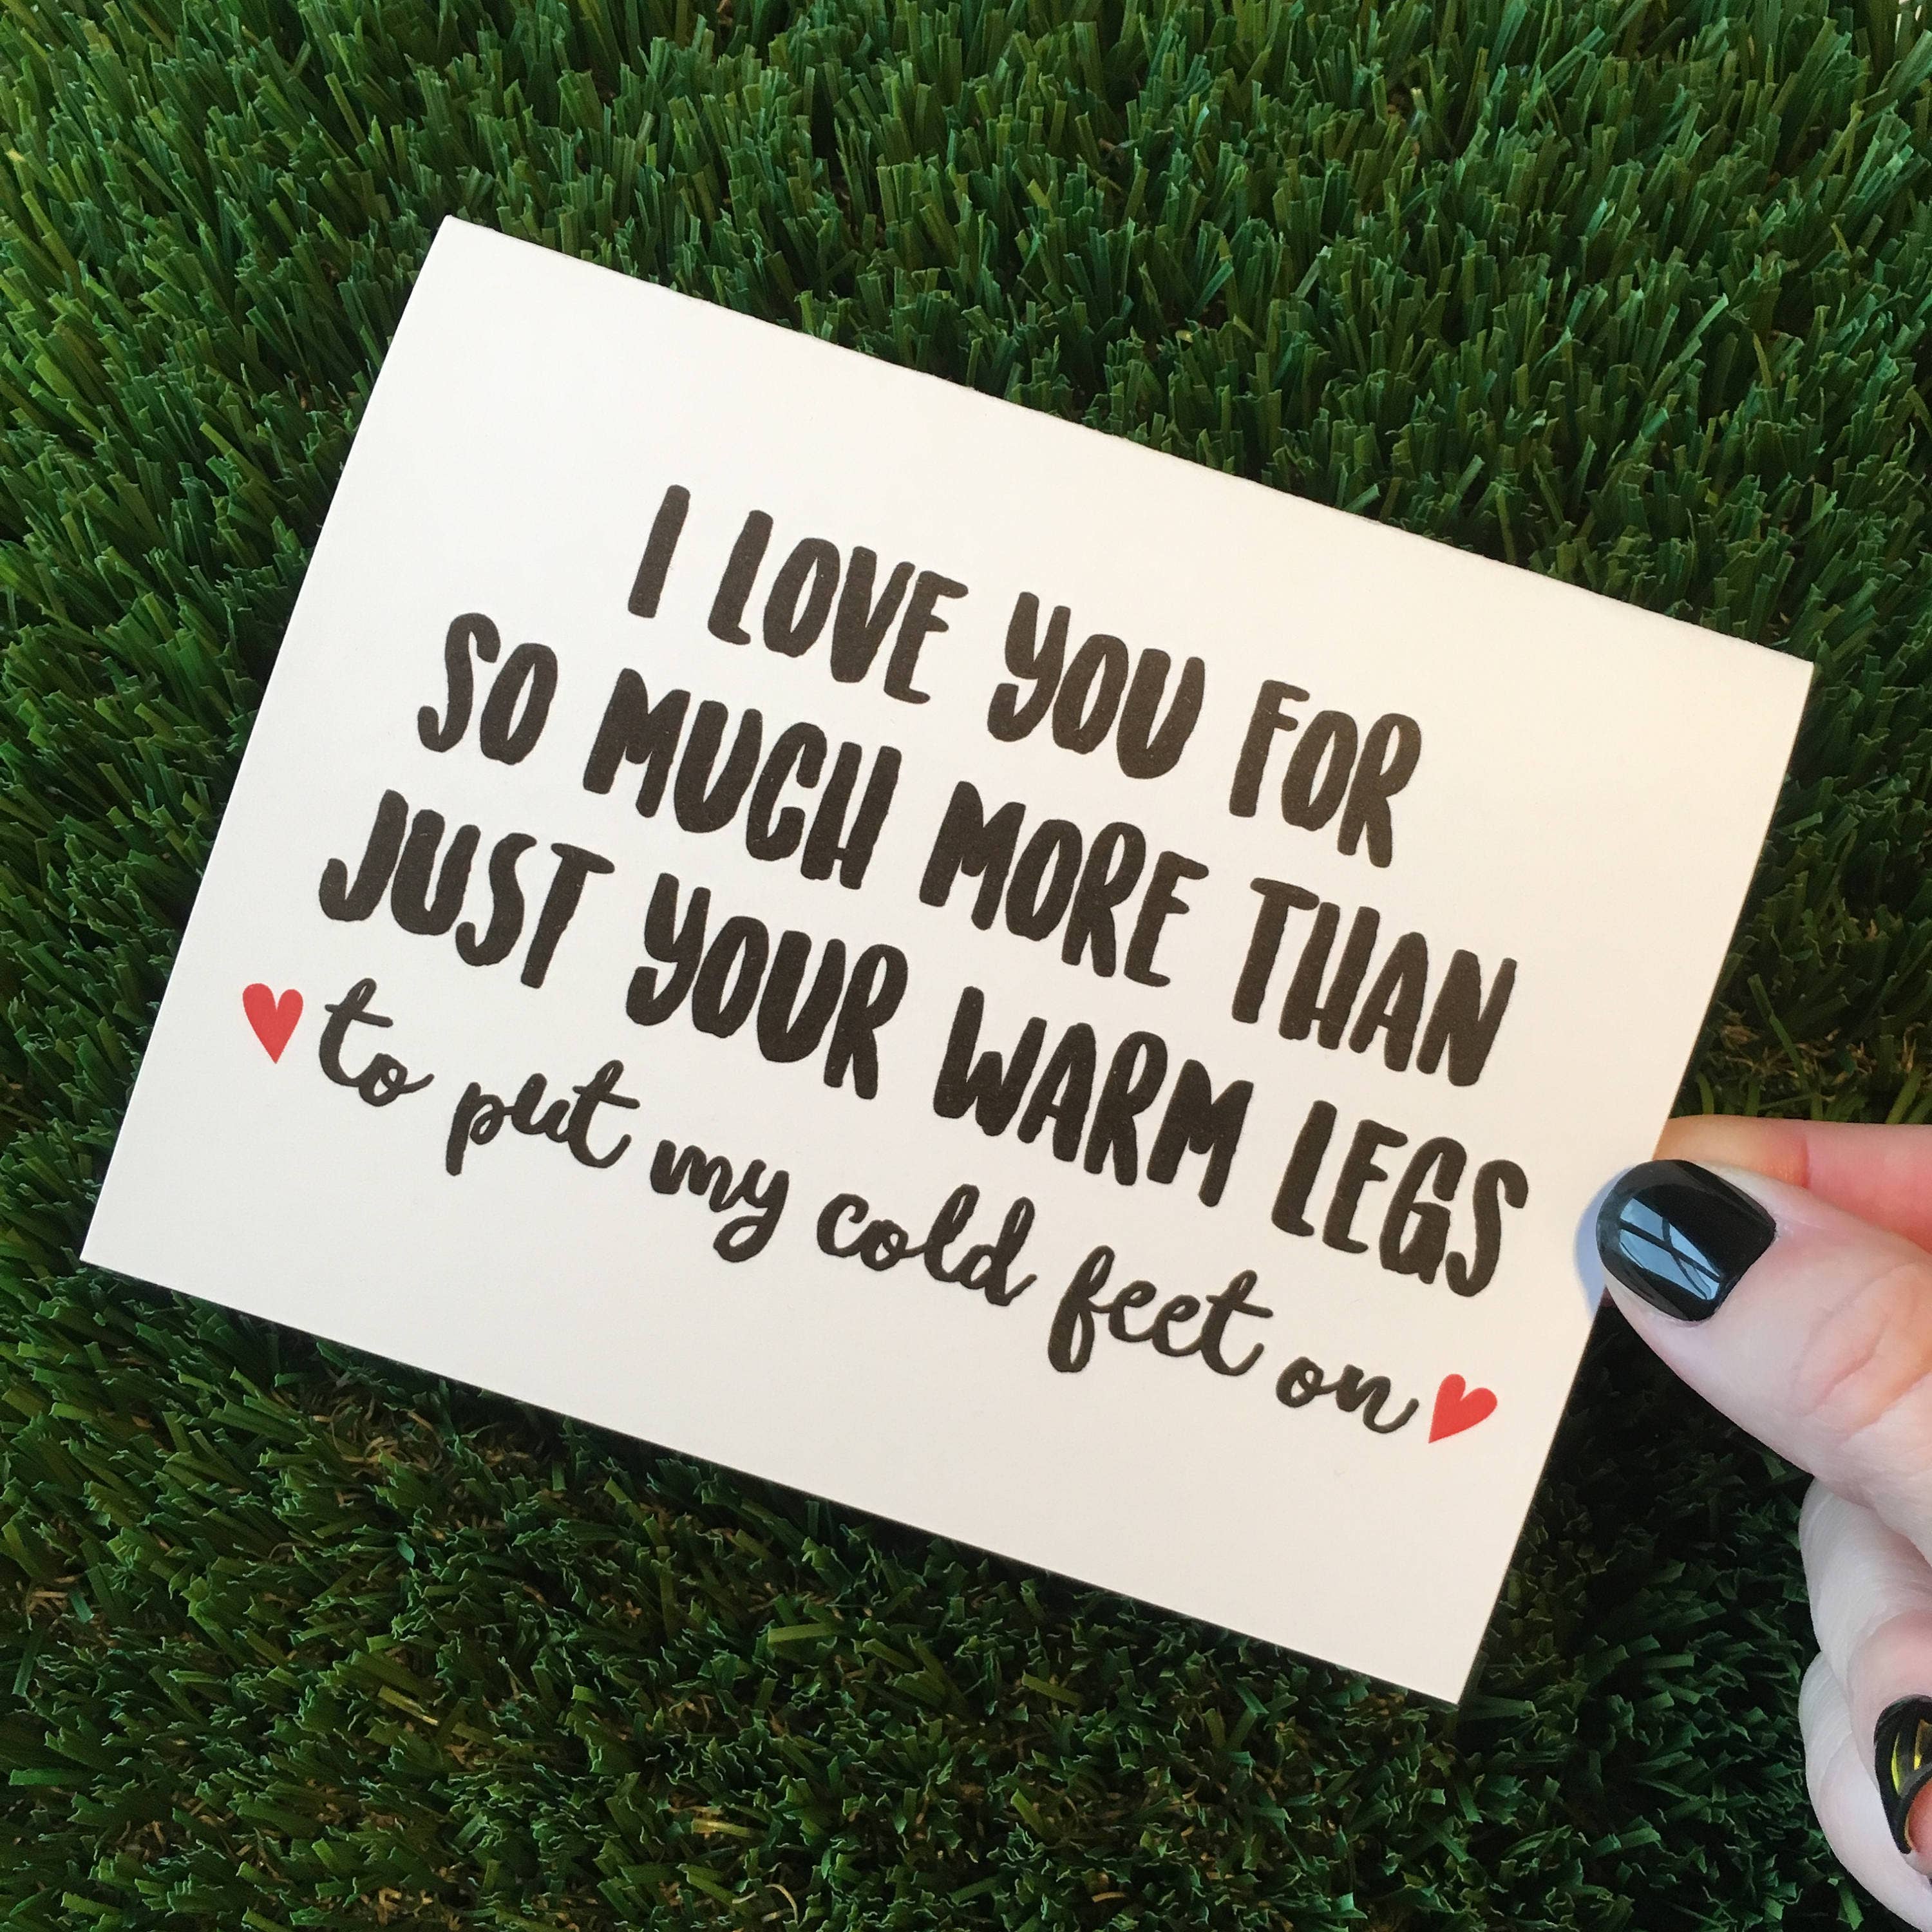 I LOVE YOU FOR
SO MUCH MORE THAN
JUST YOUR WARM LEGS
to put my cold feet on